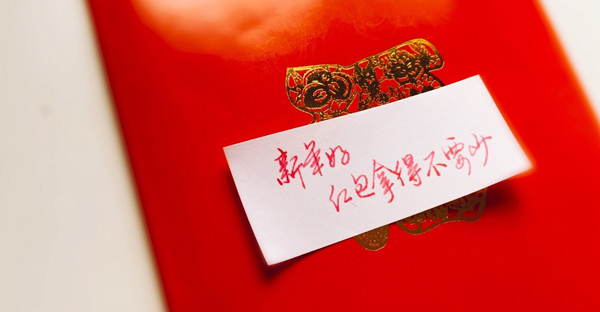 新年好
红包拿得不要少